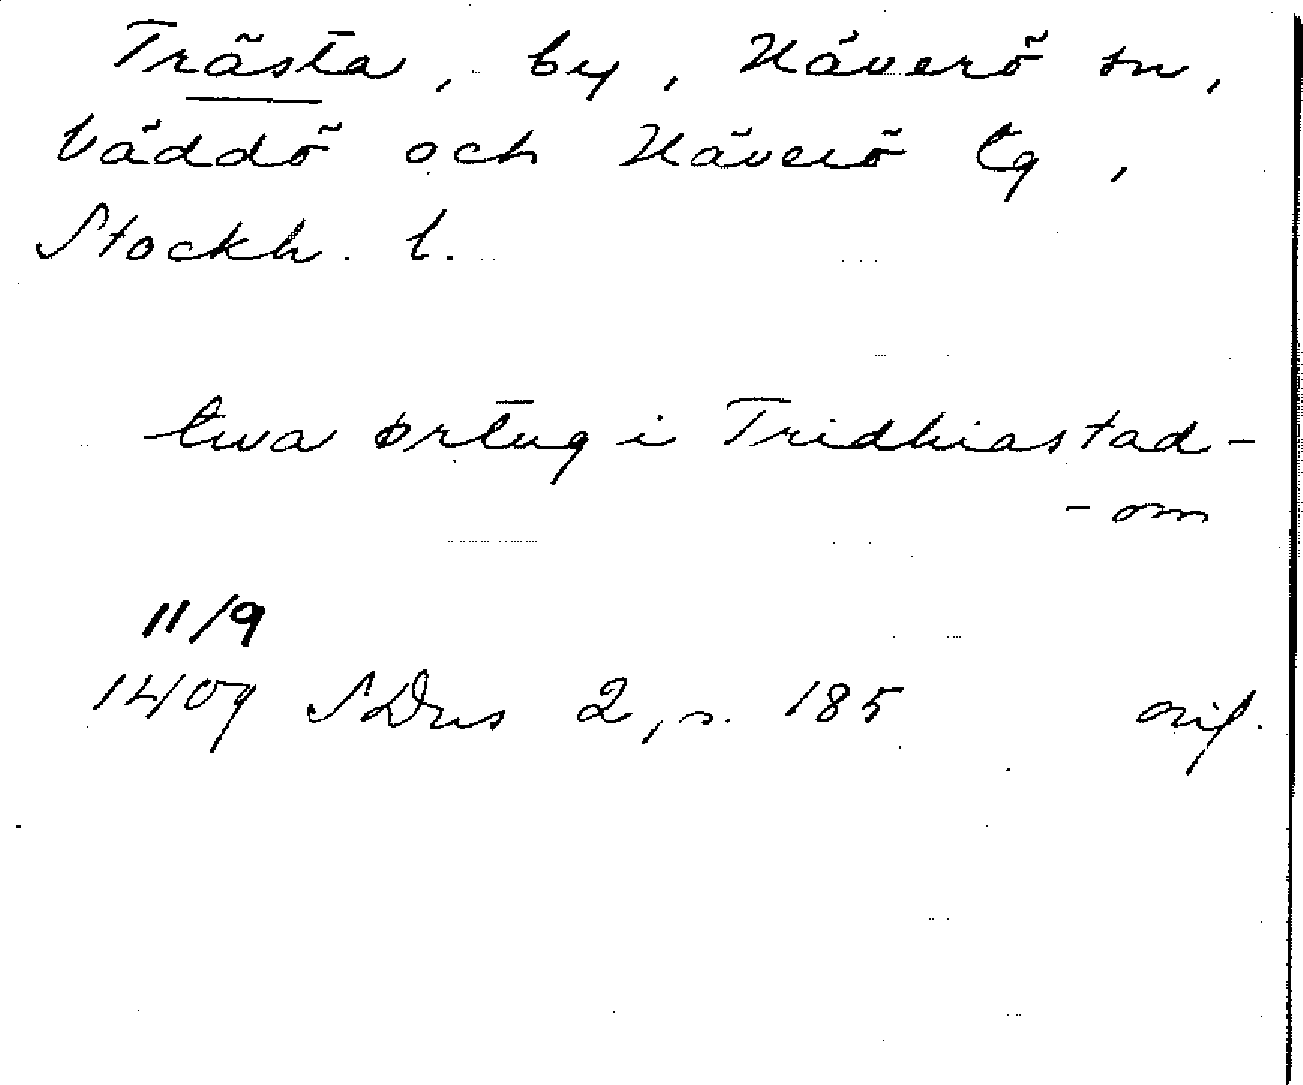 Trästa, by, Häverö sn,
Väddö och Häverö tg,
Stockh. l.
twa ørtug i Tridhiastad-
-om
11/9
1409 SDns 2, s. 185 orig.